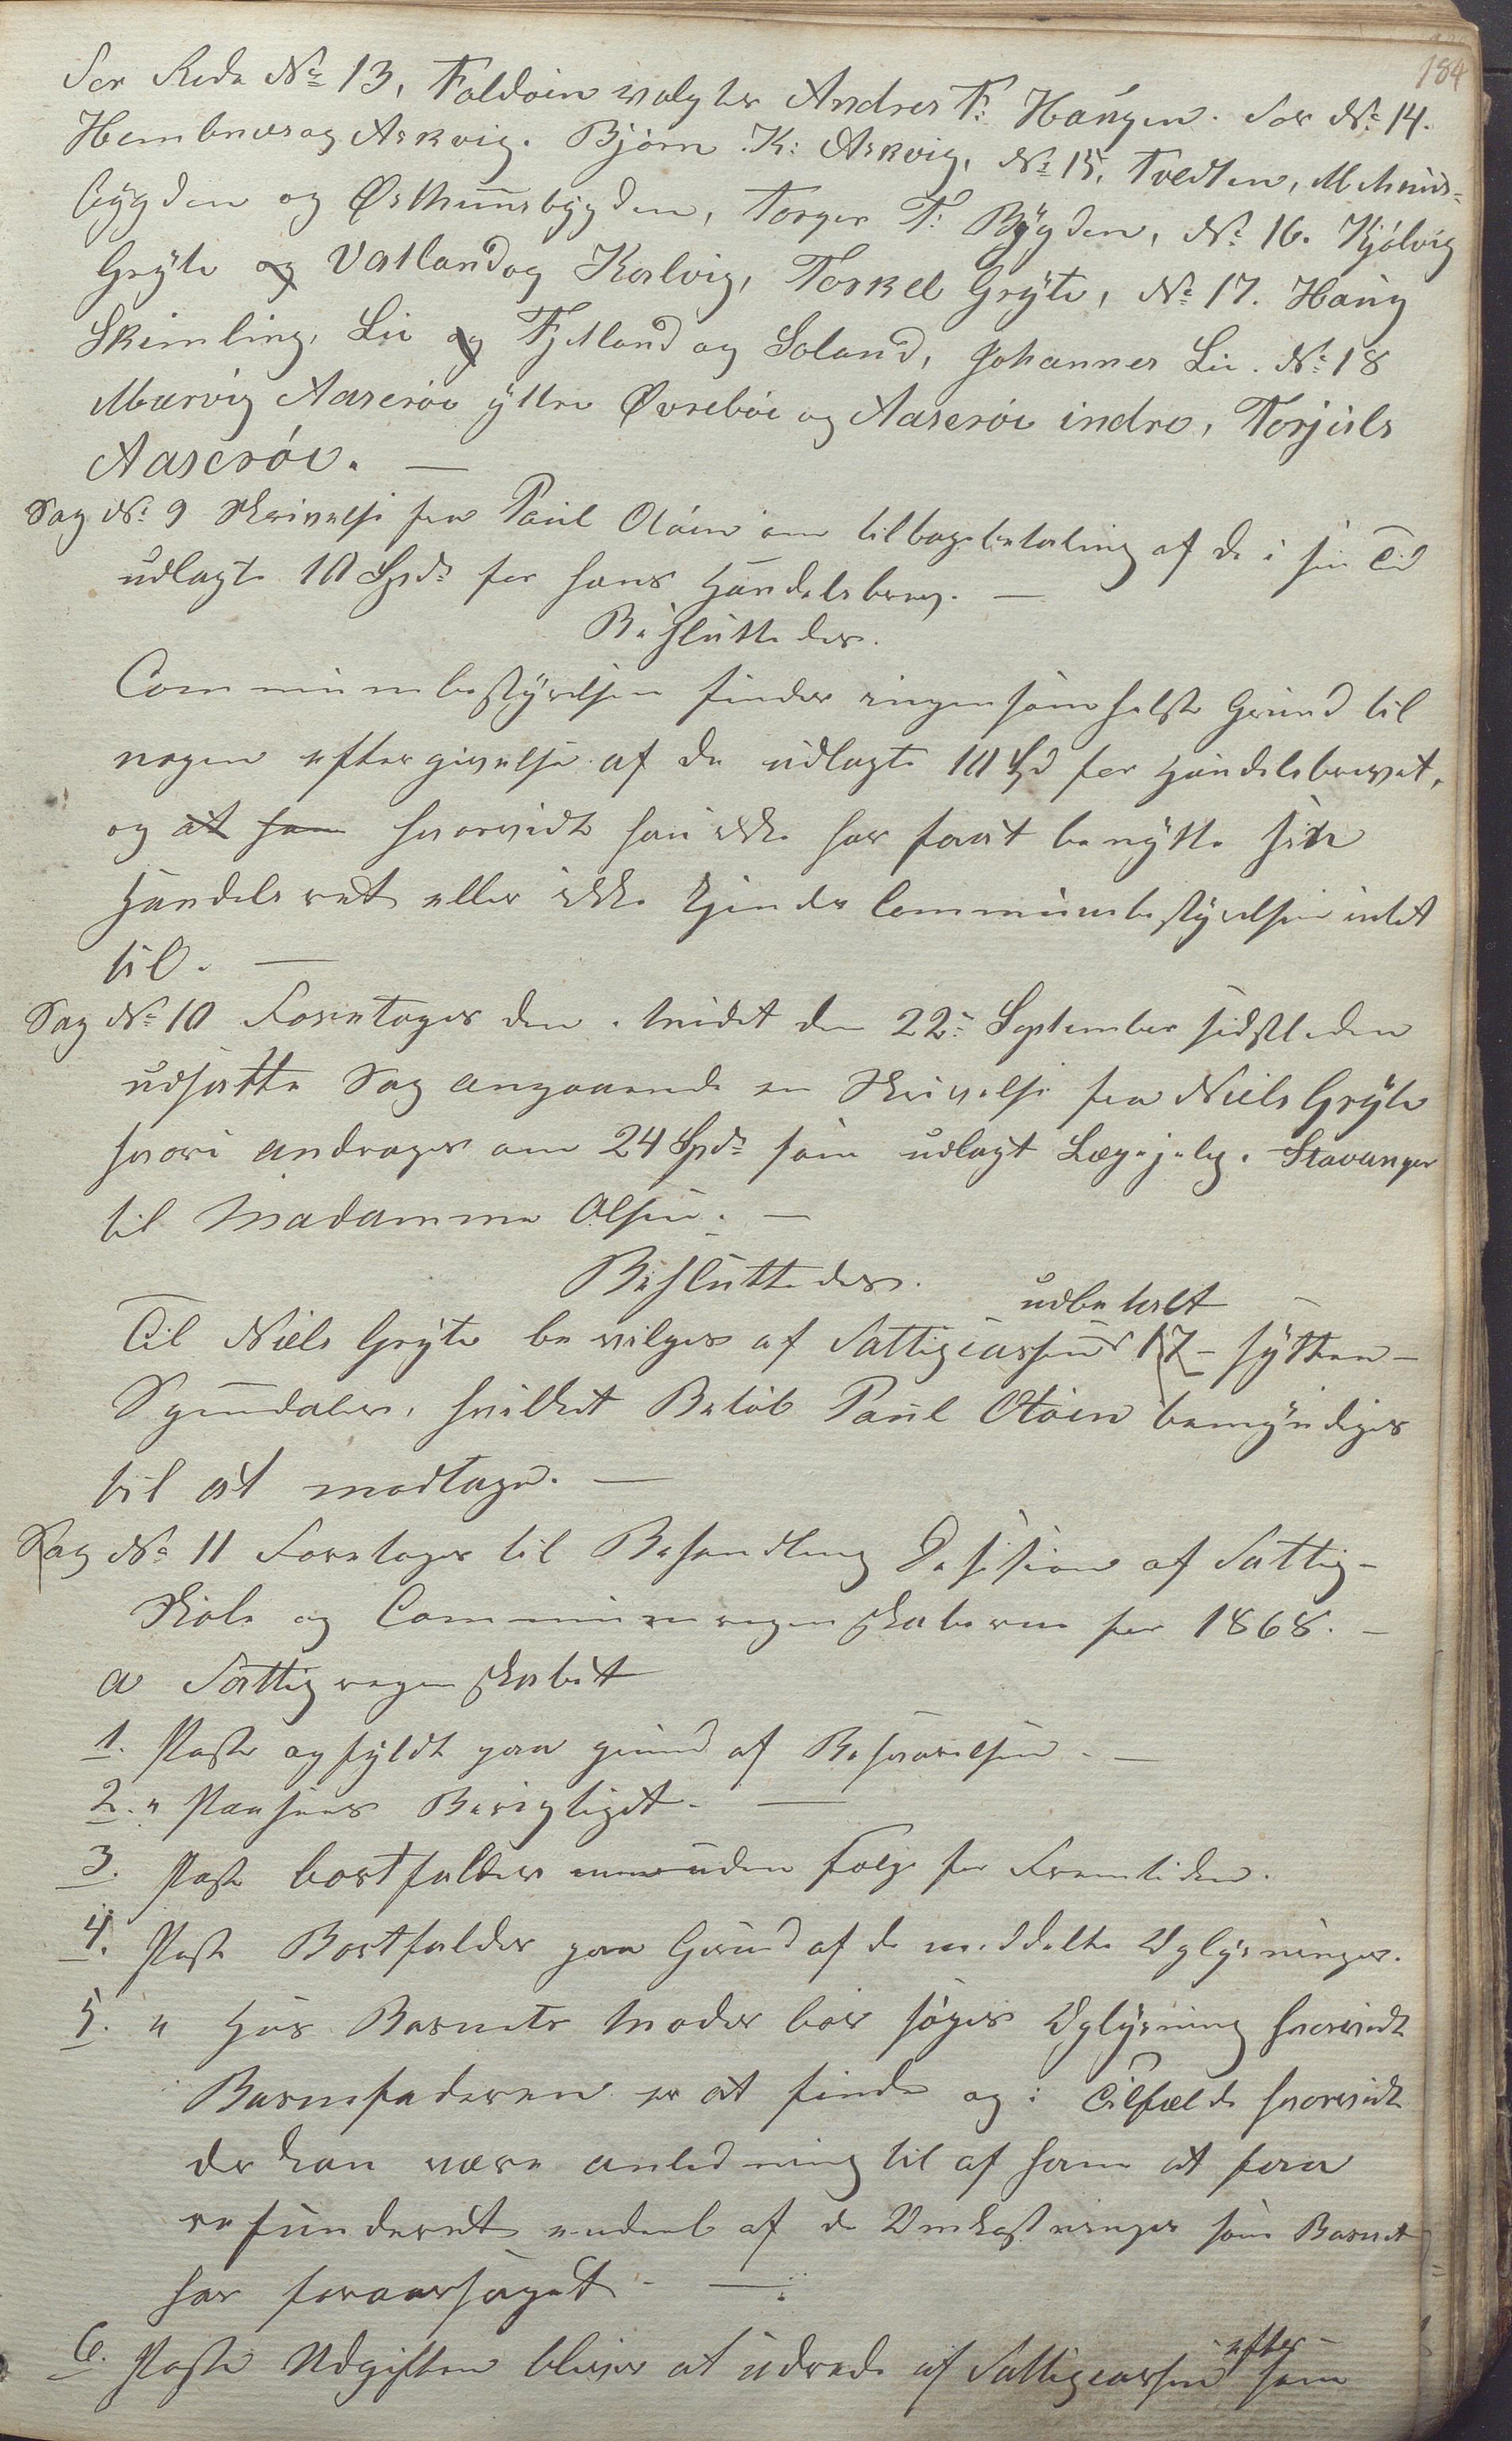 184
For Rode No 13, Foldøen valgtes Andres T: Haugen. For No 14.
Hembnes og Askvig. Bjørn K: Askvig, No 15, Tvedten, Mehuus-
bygden og Østhuusbygden, Torger T: Bygden, No 16. Kjølvig
Gryte og Vatland og Kalvig, Torkel Gryte, No 17. Haug
Skimling, Lie og Fjetland og Soland, Johannes Lie. No 18
Marvig Aaserøe yttre Øvrebøe og Aaserøe indre, Torjuls
Aaserøe. —
Sag No 9 Skrivelse fra Paul Otøen om tilbagebetaling af de i sin Tid
udlagte 10 Spd: for hans Handelsbrev. —
Besluttedes.
Communebestyrelsen finder ingensomhelst Grund til
nogen eftergivelse af de udlagte 10 Spd for Handelsbrevet,
og at han hvorvidt han ikke har faaet benytte sin
Handelsret eller ikke kjender Communebestyrelsen intet
til. —
Sag No 10 Foretages den i Mødet den 22: September sidstleden
udsatte Sag angaaende en Skrivelse fra Niels Gryte
hvori andrages om 24 Spd: som udlagt Lægehjelp i Stavanger
til Madamme Olsen. —
Besluttedes.
udbetalt
Til Niels Gryte bevilges af Fattigcassen 17 - sytten -
Speciedaler, hvilket Beløb Paul Otøen bemyndiges
til at modtage. —
Sag No 11 Foretages til Behandling Desision af Fattig-
Skole og Communeregenskaberne for 1868. —
a Fattigregenskabet
1. Post opfyldt paa grund af Besvarelsen. —
2. " Ansees Berigtiget. —
3. Post bortfalder uden følge for Fremtiden.
4. Post Bortfalder paa Grund af de meddelte Oplysninger.
5. " Hos Barnets Moder bør søges Oplysning hvorvidt
Barnefaderen er at finde og i Tilfælde hvorvidt
der kan være anledning til af ham at faa
refunderet endeel af de Omkostninger som Barnet
har foraarsaget. —
6. Post Udgiften bliver at udrede af Fattigcassen efter
som